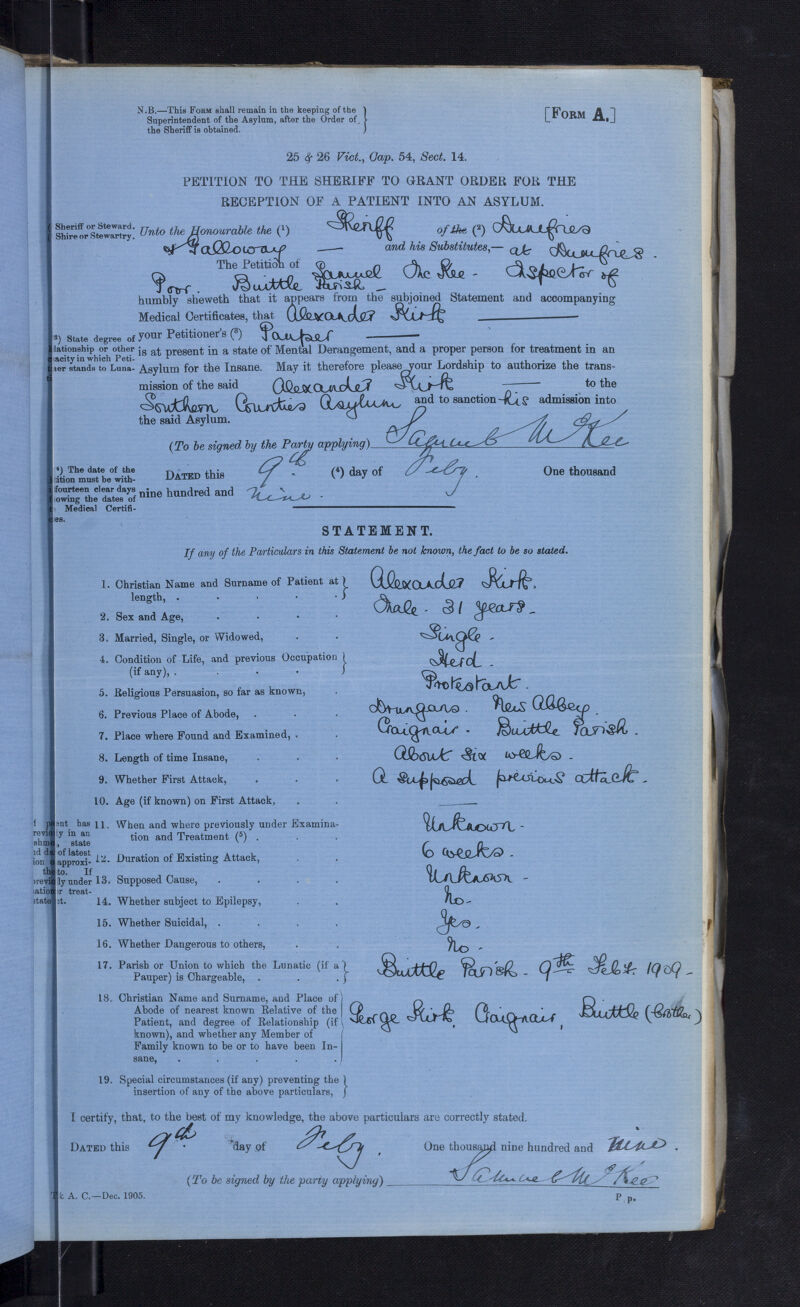 N.B.—This Form shall remain in the keeping of the
Superintendent of the Asylum, after the Order of
the Sheriff is obtained.
[Form A.]
25 & 26 Vict., Cap. 54, Sect. 14.
PETITION TO THE SHERIFF TO GRANT ORDER FOR THE
RECEPTION OF A PATIENT INTO AN ASYLUM.
Sheriff or Steward.
Shire or Stewartry.
Unto the Honourable the (¹) Sheriff of the (²) Dumfries
& Galloway — and his Substitutes,— at Dumfries.
The Petition of Samuel McKee - Inspector of
Poor. Buittle Parish —
humbly sheweth that it appears from the subjoined Statement and accompanying
Medical Certificates, that Alexander Kirk
³) State degree of
lationship or other
acity in which Peti-
ner stands to Luna-
your Petitioner's (³) Pauper
is at present in a state of Mental Derangement, and a proper person for treatment in an
Asylum for the Insane. May it therefore please your Lordship to authorize the trans-
mission of the said Alexander Kirk — to the
Southern Counties Asylum and to sanction - his admission into
the said Asylum.
(To be signed by the Party applying) Samuel McKee
⁴) The date of the
ition must be with-
fourteen clear days
owing the dates of
Medical Certifi-
es.
Dated this 9th (⁴) day of Feby. One thousand
nine hundred and nine.
STATEMENT.
If any of the Particulars in this Statement be not known, the fact to be so stated.
1. Christian Name and Surname of Patient at
length, . Alexander Kirk.
2. Sex and Age, Male - 31 years -
3. Married, Single, or Widowed, Single -
4. Condition of Life, and previous Occupation
(if any), . Herd -
5. Religious Persuasion, so far as known, Protestant.
6. Previous Place of Abode, Drungans. New Abbey.
7. Place where Found and Examined, Craignair - Buittle Parish.
8. Length of time Insane, About six weeks -
9. Whether First Attack, A supposed previous attack -
10. Age (if known) on First Attack, —
ent has
y in an
, state
of latest
approxi-
to. If
ly under
r treat-
t.
11. When and where previously under Examina-
tion and Treatment (⁵) . Unknown -
12. Duration of Existing Attack, 6 weeks -
13. Supposed Cause, Unknown -
14. Whether subject to Epilepsy, No -
15. Whether Suicidal, Yes.
16. Whether Dangerous to others, No -
17. Parish or Union to which the Lunatic (if a
Pauper) is Chargeable, Buittle Parish - 9th Febr. 1909 -
18. Christian Name and Surname, and Place of
Abode of nearest known Relative of the
Patient, and degree of Relationship (if
known), and whether any Member of
Family known to be or to have been In-
sane, George Kirk, Craignair, Buittle (Brother)
19. Special circumstances (if any) preventing the
insertion of any of the above particulars,
I certify, that, to the best of my knowledge, the above particulars are correctly stated.
Dated this 9th day of Feby. One thousand nine hundred and nine.
(To be signed by the party applying) Samuel McKee
A. C.—Dec. 1905.
P.p.